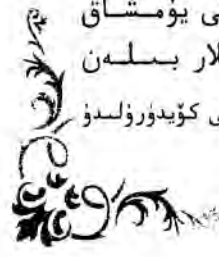 يۇمشاق
بىلەن
كۆيدۈرۈلىدۇ